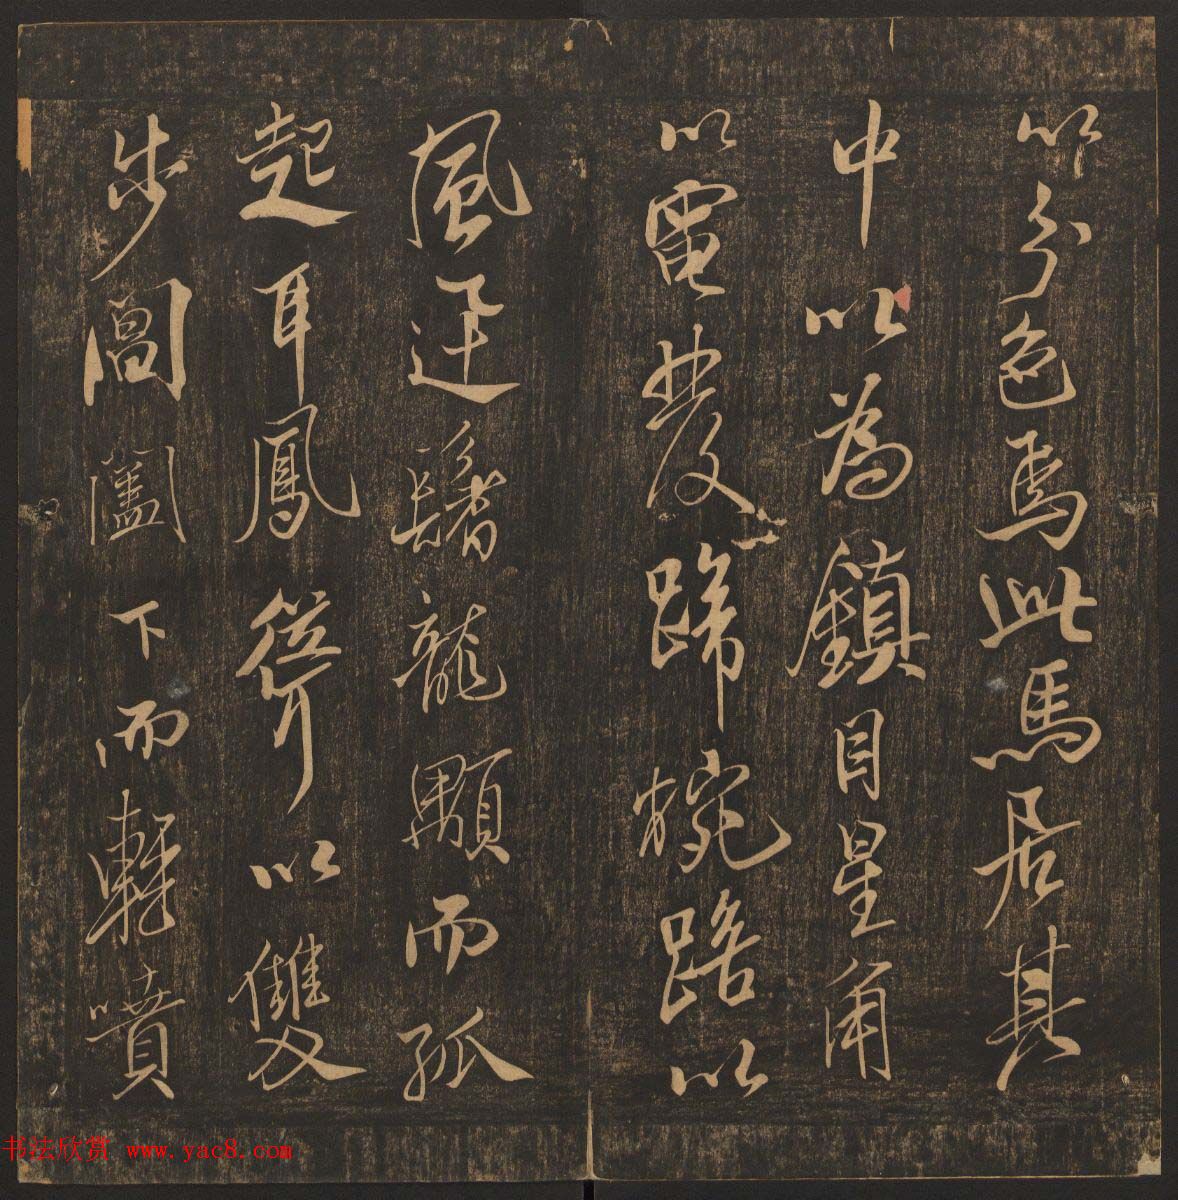 以分色焉此馬居其
中以為鎮目星角
以電發蹄椀踣以
風迮鬐龍顒而孤
起耳鳳聳以雙
步閶闔下而輕噴
书法欣赏 www.yac8.com